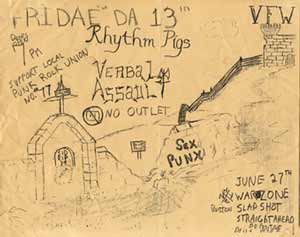 FRIDAE DA 13TH
VFW
7 PM
Rhythm Pigs
SUPPORT LOCAL
PUNK ROCK UNION
NO. 17
VERBAL
ASSAULT
NO OUTLET
SEX
PUNX
JUNE 27TH
NY
WARZONE
BOSTON
SLAPSHOT
STRAIGHTAHEAD